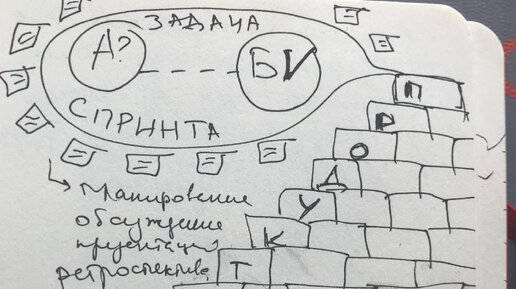 ЗАДАЧА
А? БV
СПРИНТА
Планирование
обсуждение
презентация
ретроспектива
П
Р
О
Д
У
К
Т